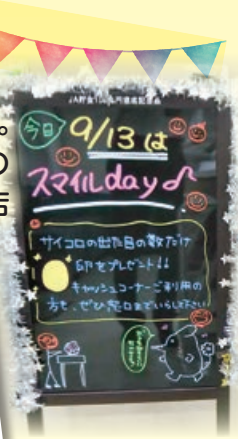 今日
9/13は
スマイルday♪
サイコロの出た目の数だけ
卵をプレゼント!!
キャッシュコーナーご利用の
方も、ぜひ窓口までいらして下さい